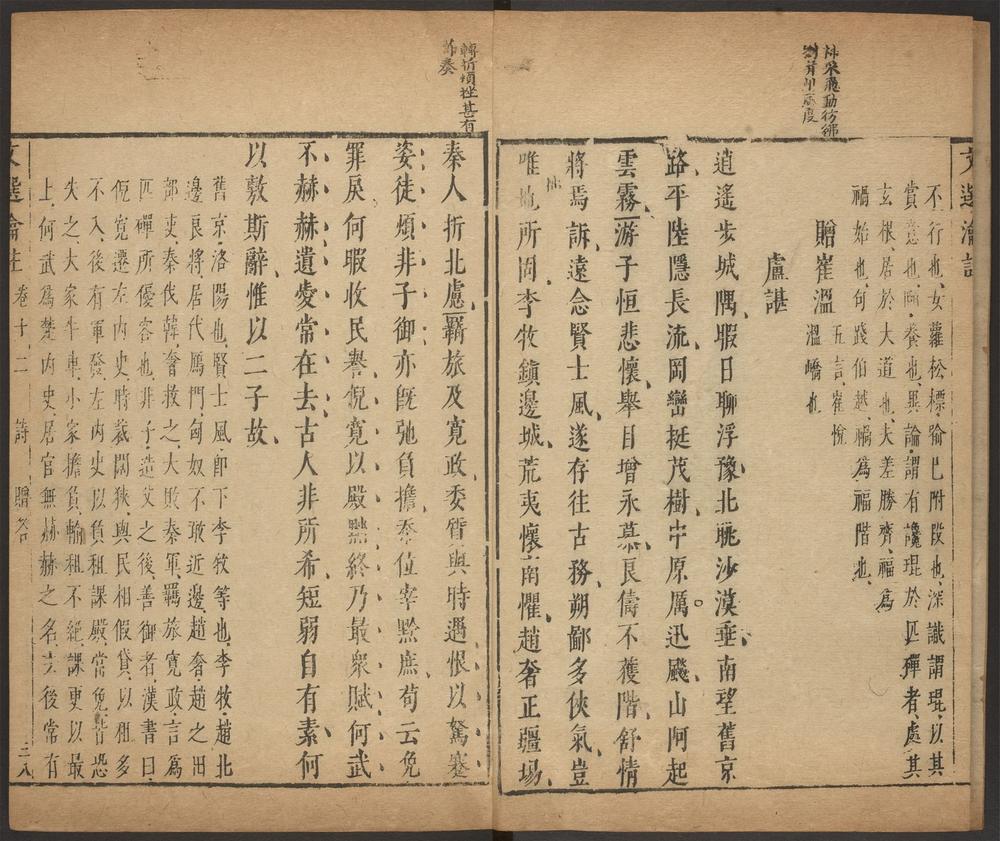 神采飛動彷彿
文選瀹註
不行也、女蘿松標喻巳附段也、深識謂琨、以其
賞意也、頤、養也、異論、謂有讒琨於匹磾者、處其
玄根、居於大道也、夫差勝齊、福爲
禍始也、句踐伯越、禍爲福階也、
贈崔溫
五言、崔悅
溫嶠也
盧諶
逍遙步城隅、暇日聊浮豫、北眺沙漠垂、南望舊京
路、平陸隱長流、岡巒挺茂樹、中原厲迅飈、山阿起
雲霧、游子恒悲懷、舉目增永慕、良儔不獲階、舒情
將焉訴、遠念賢士風、遂存往古務、朔鄙多俠氣、豈
唯地所固、李牧鎮邊城、荒夷懷南懼、趙奢正疆場、
轉折頓挫甚有
節奏
秦人折北慮、羈旅及寬政、委質與時遇、恨以駑蹇
姿、徒煩非子御、亦旣弛負擔、忝位宰黔庶、苟云免
罪戾、何暇收民譽、倪寬以殿黜、終乃最衆賦、何武
不赫赫、遺愛常在去、古人非所希、短弱自有素、何
以敷斯辭、惟以二子故、
舊京、洛陽也、賢士風、卽下李牧等也、李牧、趙北
邊良將、居代鴈門、匈奴不敢近邊、趙奢、趙之田
部吏、秦伐韓、奢救之、大敗秦軍、羈旅寬政、言爲
匹磾所優容也、非子、造父之後、善御者、漢書曰、
倪寬遷左內史、時裁闊狹、與民相假貸、以租多
不入、後有軍發、左內史以負租課殿、當免、皆恐
失之、大家牛車、小家擔負、輸租不絕、課更以最
上、何武爲楚內史、居官無赫赫之名、去後常有
文選瀹註 卷十二 詩 贈答 三八